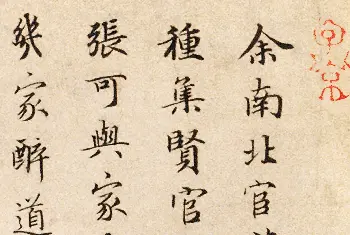 余南北官
種集賢官
張可與家
幾家醉道